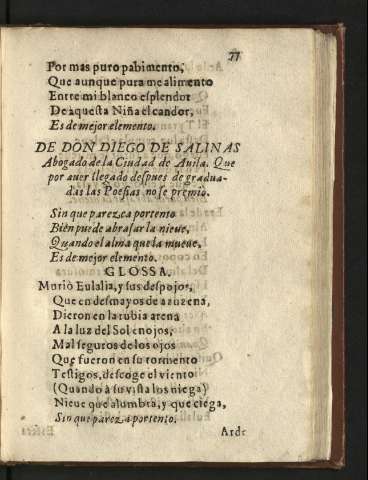 77
Por mas puro pabimento,
Que aunque pura me alimento
Entre mi blanco esplendor
De aquesta Niña el candor,
Es de mejor elemento.
DE DON DIEGO DE SALINAS
Abogado de la Ciudad de Auila. Que
por auer llegado despues de gradua-
das las Poesias no se premiò.
Sin que parezca portento
Bien puede abrasar la nieue,
Quando el alma que la mueue,
Es de mejor elemento.
GLOSSA.
Muriò Eulalia, y sus despojos,
Que en desmayos de azuzena,
Dieron en la rubia arena
A la luz del Sol enojos,
Mal seguros de los ojos
Que fueron en su tormento
Testigos, descoge el viento
(Quando à su vista los niega)
Nieue que alumbra, y que ciega,
Sin que parezca portento.
Arde